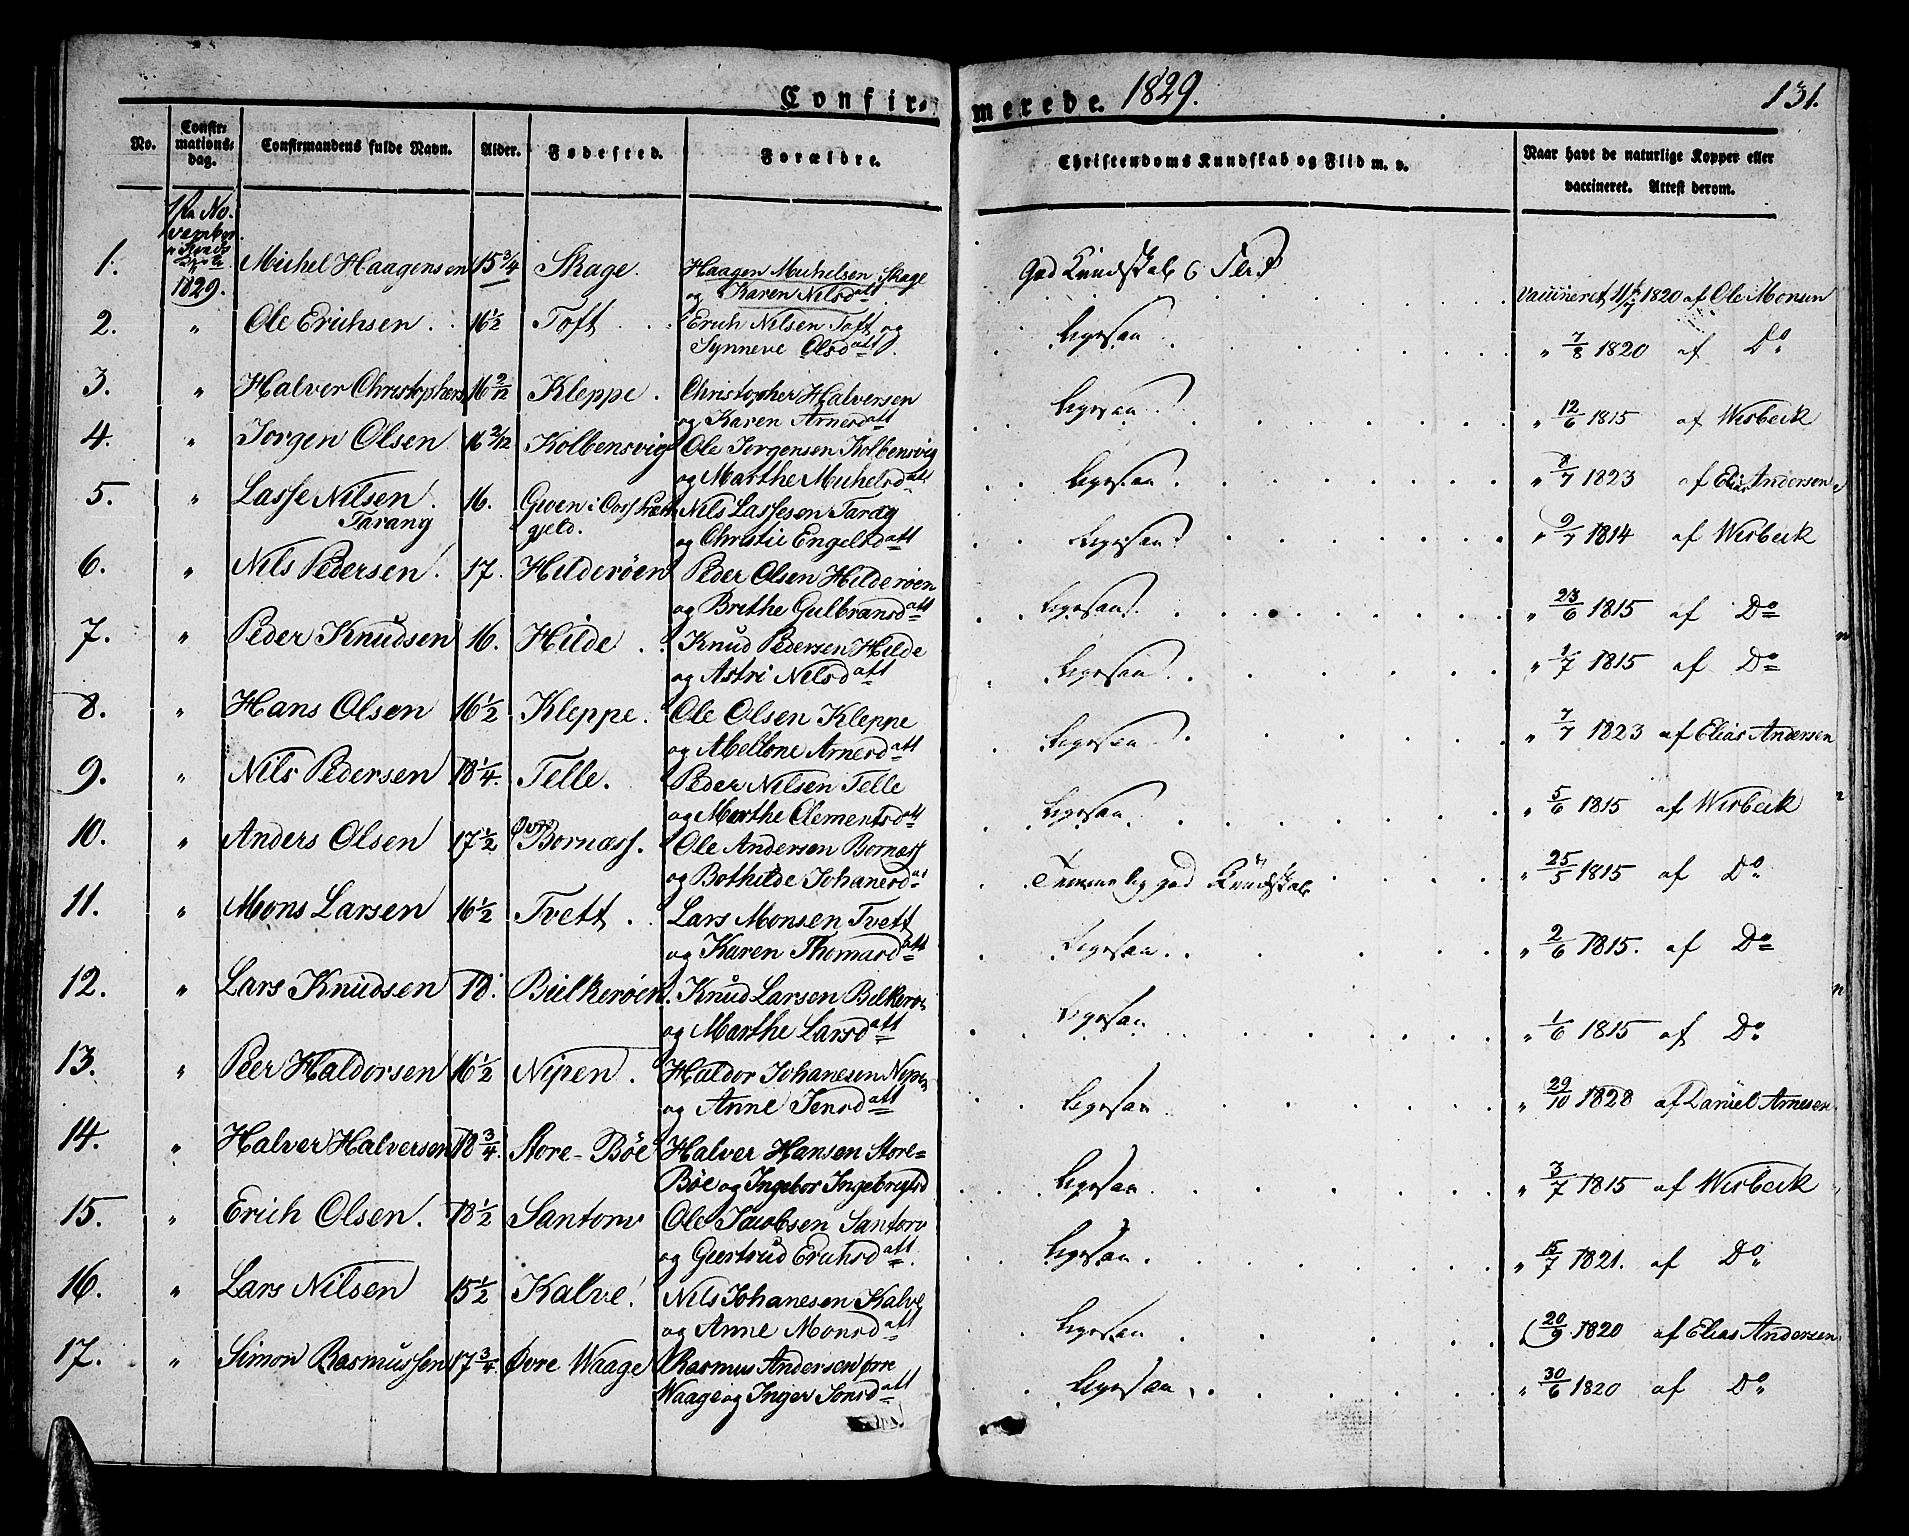 Confir-
merede. 1829.
131.
No.
Confir-
mations-
dag.
Confirmandens fulde Navn.
Alder.
Fødested.
Forældre.
Christendoms Kundskab og Flid m. v.
Naar havt de naturlige Kopper eller
vaccineret. Attest derom.
No-
vember
1829.
1. Michel Haagensen 15 3/4 Skage. Haagen Michelsen Skage
og Karen Nilsdatt God Kundskab & Flid Vaccineret 1820 af Ole Monsen
2. " Ole Erichsen. 16 1/2 Toft. Erich Nilsen Toft og
Synneve Olsdatt. Ligesaa " 7/8 1820 af Do
3. " Halver Christophers 16 2/12 Kleppe. Christopher Halversen
og Karen Arnesdatt Ligesaa " 12/6 1815 af Wesbeck
4. " Jorgen Olsen 16 2/12 Kolbensvig Ole Jorgensen Kolbensvig
og Marthe Michelsdatt Ligesaa " 8/7 1823 af Elias Andersen
5. " Lasse Nilsen 16. Gwen i Nils Lassesen Tarang
Tarang gjeld. og Christie Engelsdatt Ligesaa " 9/7 1814 af Wesbeck
6. " Nils Pedersen. 17. Hilderøen Peder Olsen Hilderøen
og Brethe Gulbransdatt Ligesaa " 23/6 1815 af Do
7. " Peder Knudsen 16. Hilde. Knud Pedersen Hilde
og Astri Nilsdatt Ligesaa " 1/7 1815 af Do
8. " Hans Olsen 16 1/2 Kleppe. Ole Olsen Kleppe
og Mellone Arnesdatt Ligesaa " 7/7 1823 af Elias Andersen
9. " Nils Pedersen 18 1/4. Telle. Peder Nilsen Telle
og Marthe Clementsdtt Ligesaa " 5/6 1815 af Wesbeck
10. " Anders Olsen 17 1/2 Øvre Bornæss. Ole Andersen Bornæss
og Bothilde Johanesdat Temmelig god Kundskab " 25/5 1815 af Do
11. " Mons Larsen 16 1/2 Tvett. Lars Monsen Tvett
og Karen Thomasdatt Ligesaa " 2/6 1815. af Do
12. " Lars Knudsen 18. Bielkerøen. Knud Larsen Belkerø
og Marthe Larsdatt Ligesaa " 1/6 1815 af Do
13. " Peer Haldorsen 16 1/2 Nipen. Haldor Johanesen Nipen
og Anne Jensdatt Ligesaa " 29/10 1828 af Daniel Arnesen
14. " Halver Halversen 18 3/4. Store-Bøe Halver Hansen Store-
Bøe og Ingebor Ingebrigtsd Ligesaa " 3/7 1815 af Wesbeck
15. " Erich Olsen. 18 1/2 Santorv Ole Jacobsen Santorv
og Giertrud Erichsdatt. Ligesaa " 15/7 1821. af Do
16. " Lars Nilsen 15 1/2 Kalve. Nils Johanesen Kalve
og Anne Monsdatt Ligesaa 20/9 1820 af Elias Andersen
17. " Simon Rasmussen 17 3/4. Øvre Waage Rasmus Andersen øvre
Waage og Inger Jonsdatt Ligesaa " 30/6 1820 af Do